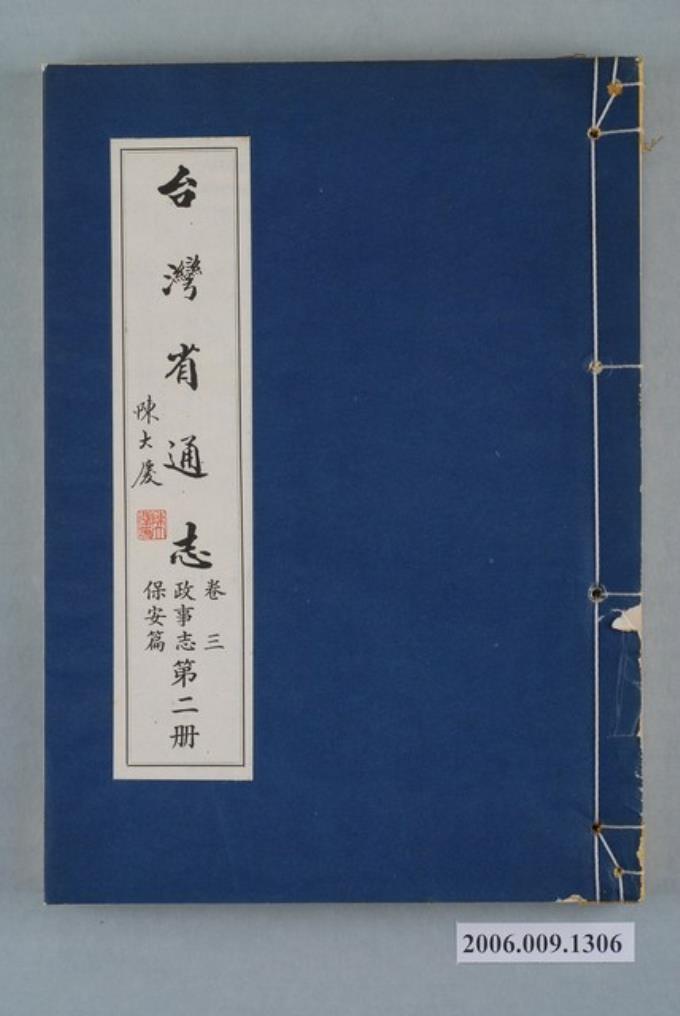 台灣省通志
陳大慶
卷三
政事志
保安篇
第二册
2006.009.1306